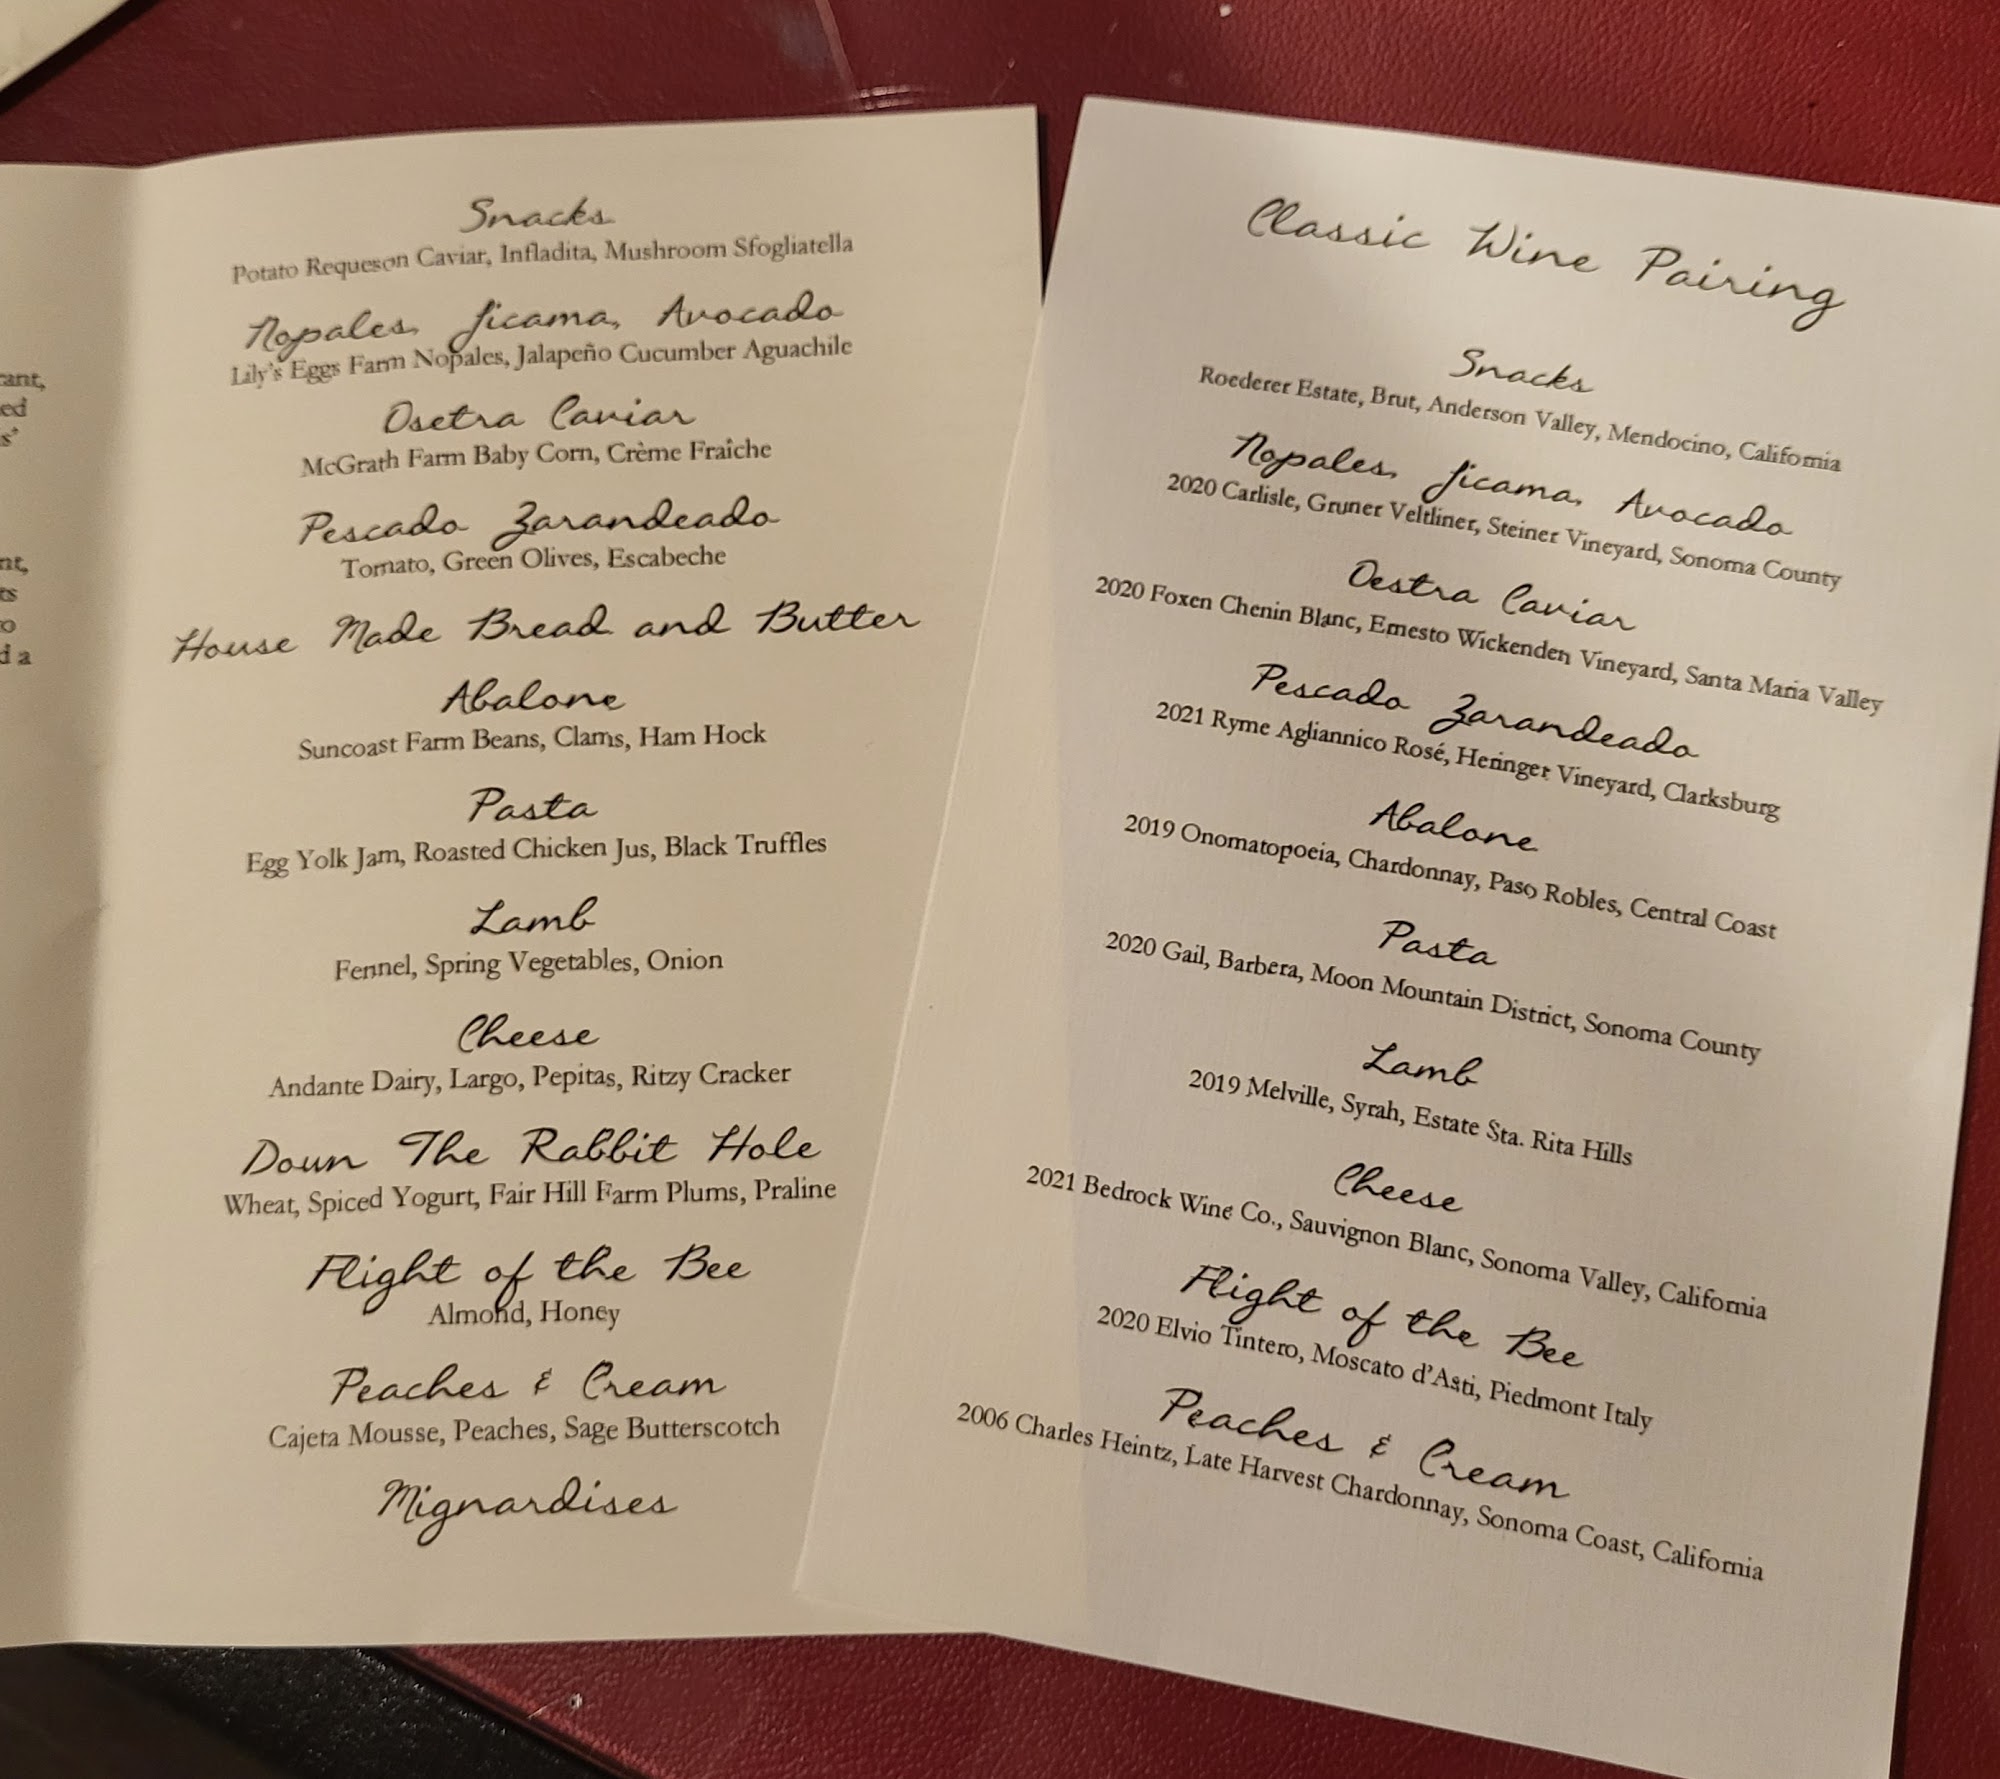 rant,
ed
s'
nt,
ts
o
d a
Snacks
Potato Requeson Caviar, Infladita, Mushroom Sfogliatella
Nopales, Jicama, Avocado
Lily's Eggs Farm Nopales, Jalapeño Cucumber Aguachile
Osetra Caviar
McGrath Farm Baby Corn, Crème Fraîche
Pescado Zarandeado
Tomato, Green Olives, Escabeche
House Made Bread and Butter
Abalone
Suncoast Farm Beans, Clams, Ham Hock
Pasta
Egg Yolk Jam, Roasted Chicken Jus, Black Truffles
Lamb
Fennel, Spring Vegetables, Onion
Cheese
Andante Dairy, Largo, Pepitas, Ritzy Cracker
Down The Rabbit Hole
Wheat, Spiced Yogurt, Fair Hill Farm Plums, Praline
Flight of the Bee
Almond, Honey
Peaches & Cream
Cajeta Mousse, Peaches, Sage Butterscotch
Mignardises
Classic Wine Pairing
Snacks
Roederer Estate, Brut, Anderson Valley, Mendocino, California
Nopales, Jicama, Avocado
2020 Carlisle, Gruner Veltliner, Steiner Vineyard, Sonoma County
Oestra Caviar
2020 Foxen Chenin Blanc, Ernesto Wickenden Vineyard, Santa Maria Valley
Pescado Zarandeado
2021 Ryme Agliannico Rosé, Heringer Vineyard, Clarksburg
Abalone
2019 Onomatopoeia, Chardonnay, Paso Robles, Central Coast
Pasta
2020 Gail, Barbera, Moon Mountain District, Sonoma County
Lamb
2019 Melville, Syrah, Estate Sta. Rita Hills
Cheese
2021 Bedrock Wine Co., Sauvignon Blanc, Sonoma Valley, California
Flight of the Bee
2020 Elvio Tintero, Moscato d'Asti, Piedmont Italy
Peaches & Cream
2006 Charles Heintz, Late Harvest Chardonnay, Sonoma Coast, California